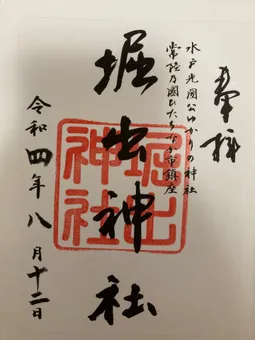 奉拝
水戸光圀公ゆかりの神社
常陸乃國ひたちなか市鎮座
堀出神社
堀出
神社
令和四年八月十二日